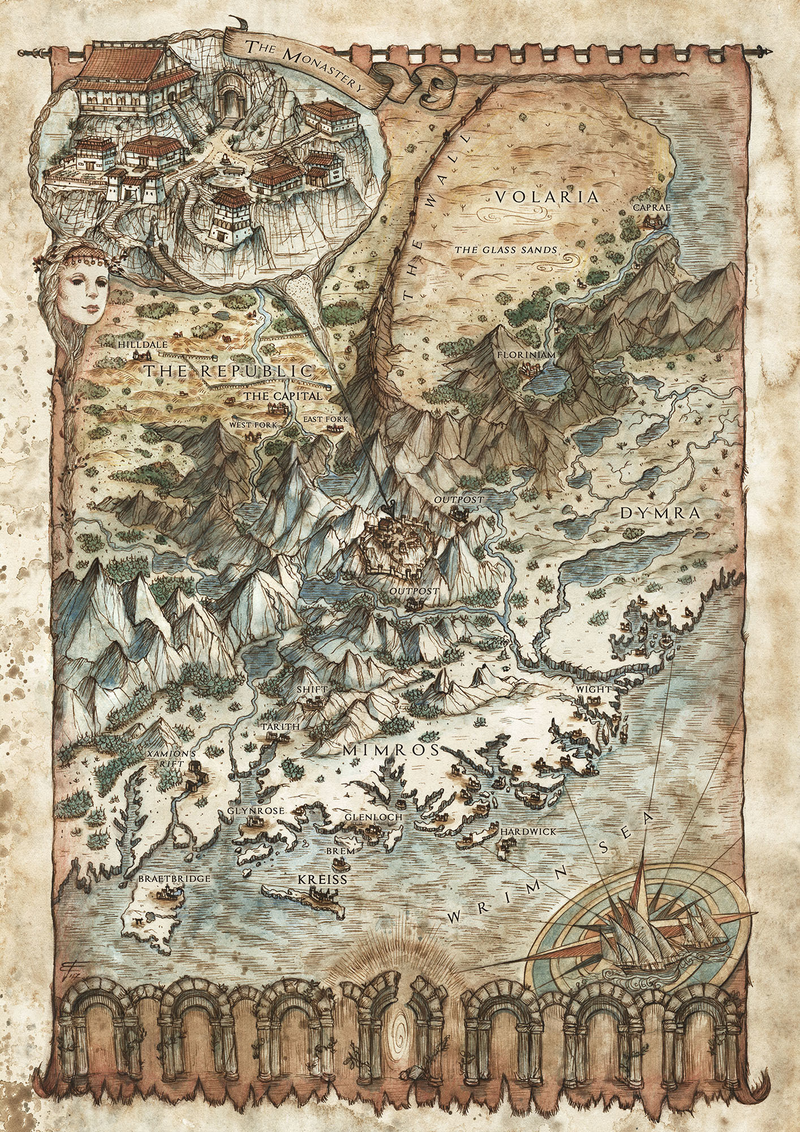 The Monastery
THE WALL
VOLARIA
CAPRAE
THE GLASS SANDS
HILLDALE
THE REPUBLIC
FLORINIAM
THE CAPITAL
WEST FORK
EAST FORK
OUTPOST
DYMRA
OUTPOST
SHIFT
WIGHT
TARITH
MIMROS
XAMION'S
RIFT
GLYNROSE
GLENLOCH
HARDWICK
BREM
BRAETBRIDGE
KREISS
WRIMN SEA